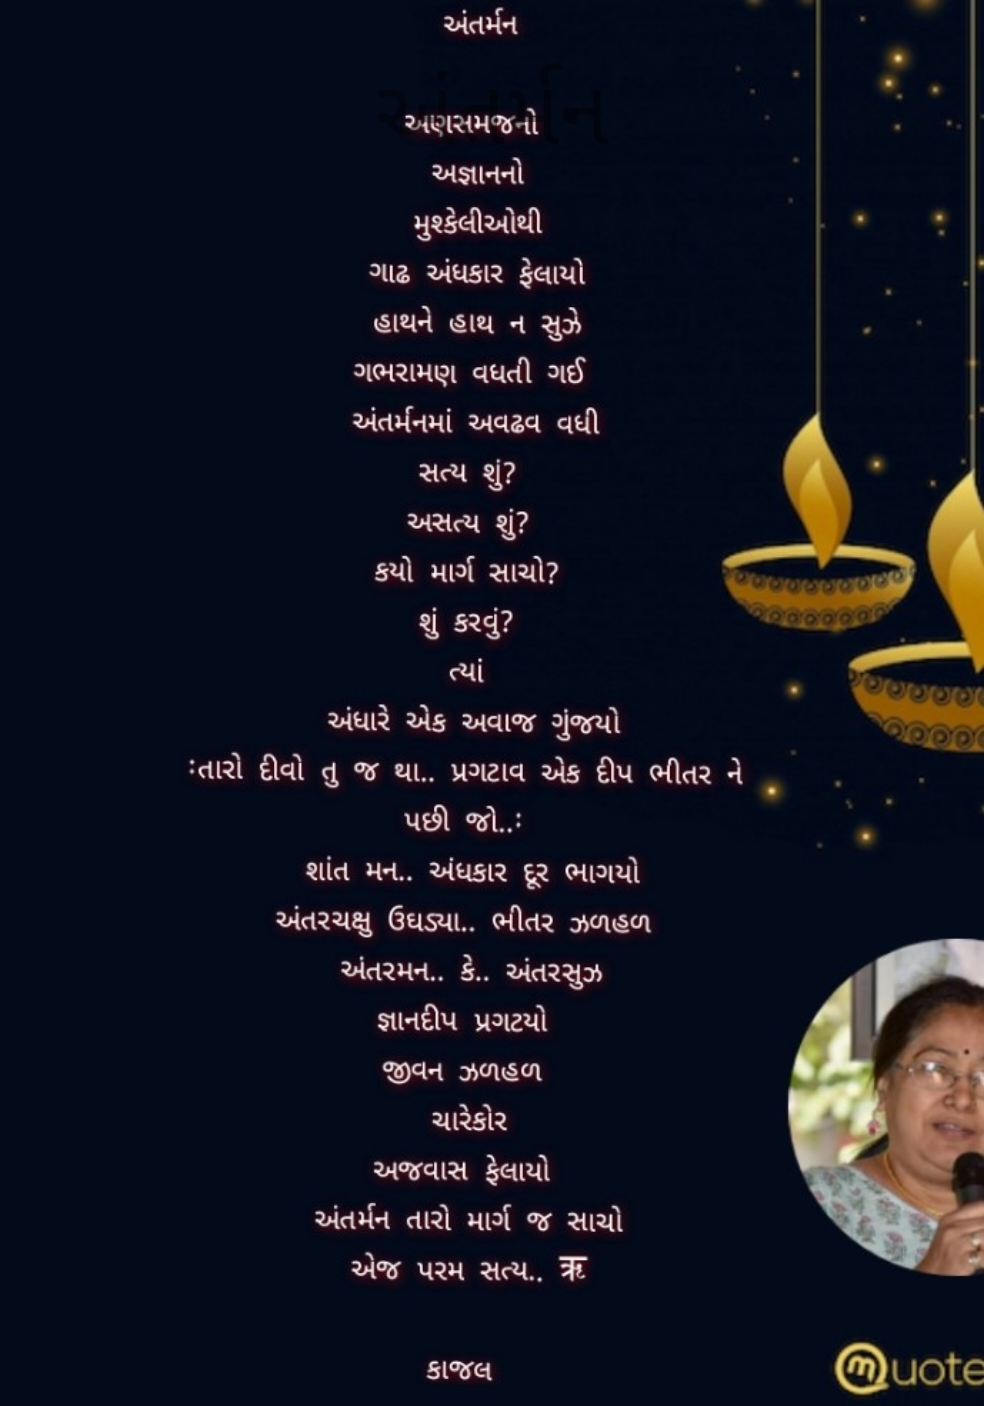 અંતર્મન
અંતર્મન
અણસમજનો
અજ્ઞાનનો
મુશ્કેલીઓથી
ગાઢ અંધકાર ફેલાયો
હાથને હાથ ન સુઝે
ગભરામણ વધતી ગઈ
અંતર્મનમાં અવઢવ વધી
સત્ય શું?
અસત્ય શું?
કયો માર્ગ સાચો?
શું કરવું?
ત્યાં
અંધારે એક અવાજ ગુંજયો
ઃતારો દીવો તુ જ થા.. પ્રગટાવ એક દીપ ભીતર ને
પછી જો..ઃ
શાંત મન.. અંધકાર દૂર ભાગયો
અંતરચક્ષુ ઉઘડ્યા.. ભીતર ઝળહળ
અંતરમન.. કે.. અંતરસુઝ
જ્ઞાનદીપ પ્રગટયો
જીવન ઝળહળ
ચારેકોર
અજવાસ ફેલાયો
અંતર્મન તારો માર્ગ જ સાચો
એજ પરમ સત્ય.. ૠ
કાજલ
muote